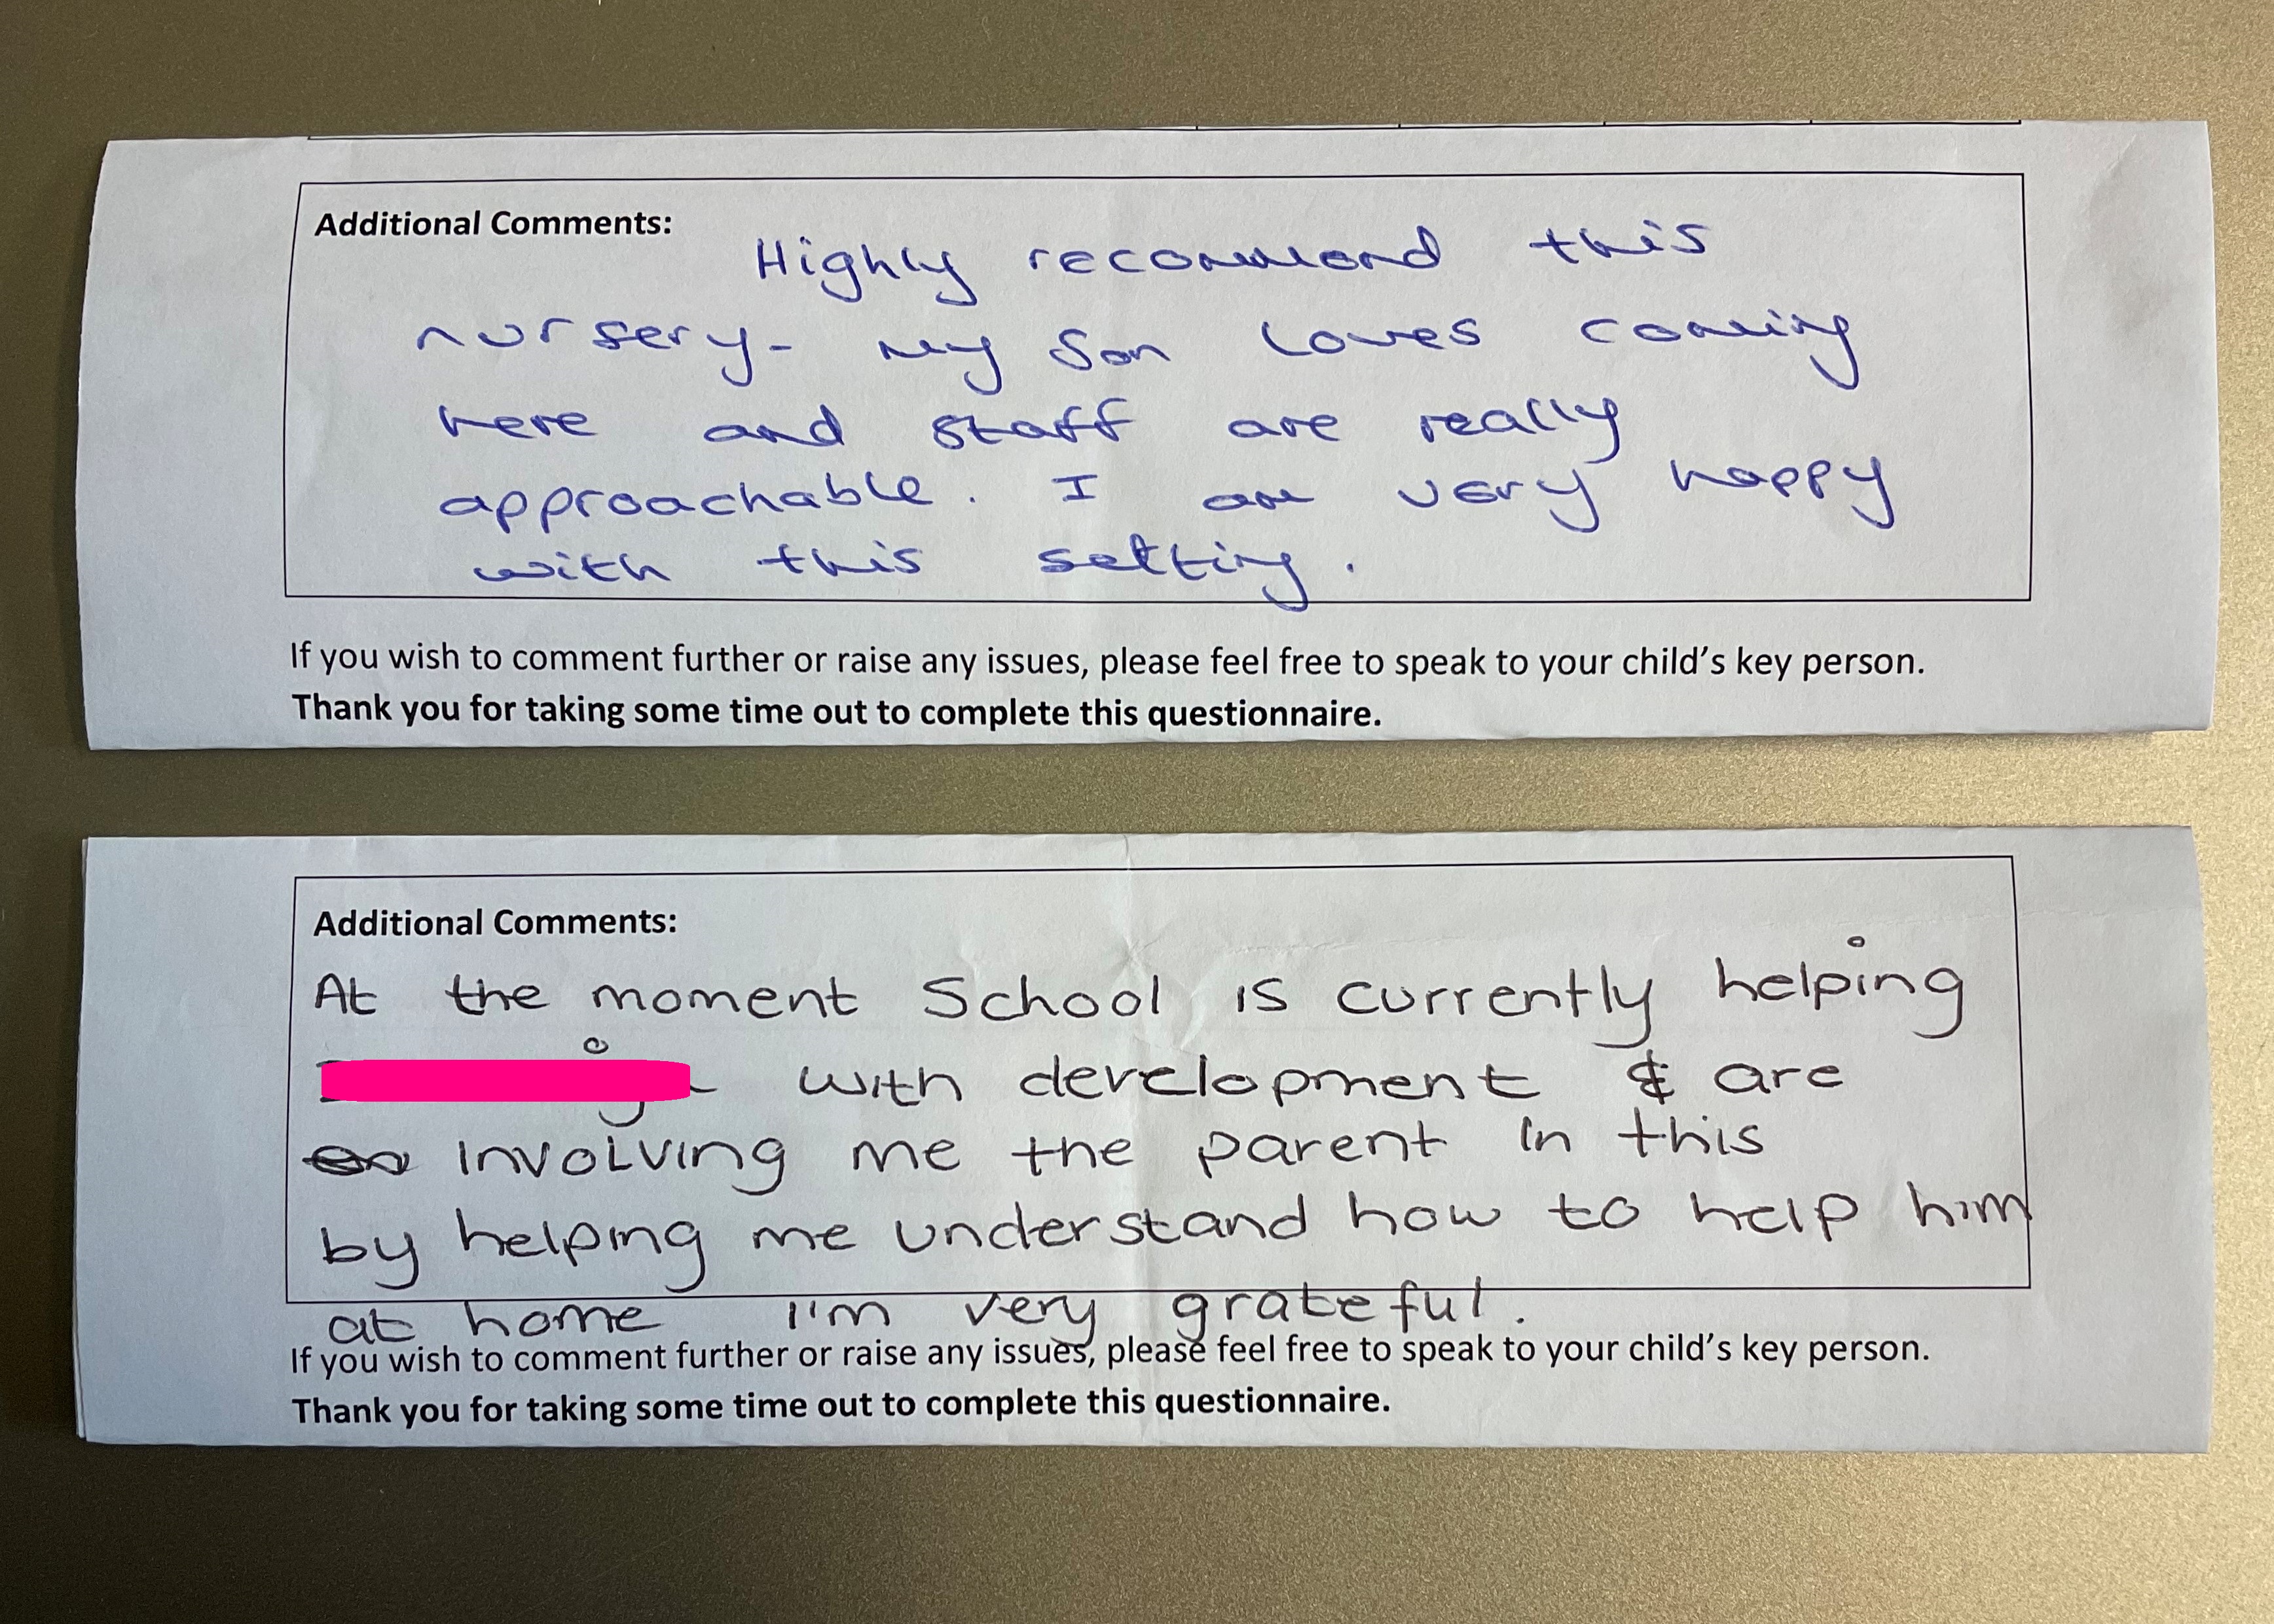 Additional Comments:
Highly recommend this
nursery - my son loves coming
here and staff are really
approachable. I am very happy
with this setting.
If you wish to comment further or raise any issues, please feel free to speak to your child's key person.
Thank you for taking some time out to complete this questionnaire.
Additional Comments:
At the moment School is currently helping
with development & are
involving me the parent in this
by helping me understand how to help him
at home I'm very grateful.
If you wish to comment further or raise any issues, please feel free to speak to your child's key person.
Thank you for taking some time out to complete this questionnaire.